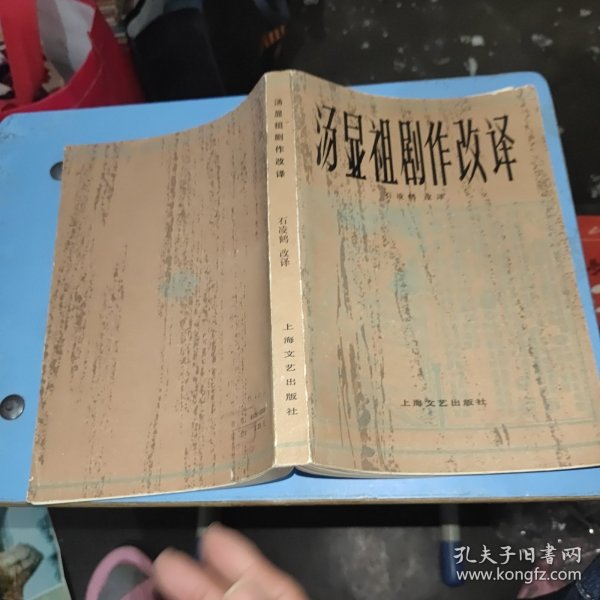 汤显祖剧作改译
石凌鹤 改译
上海文艺出版社
汤显祖剧作改译
石凌鹤 改译
上海文艺出版社
孔夫子旧书网
www.kongfz.com